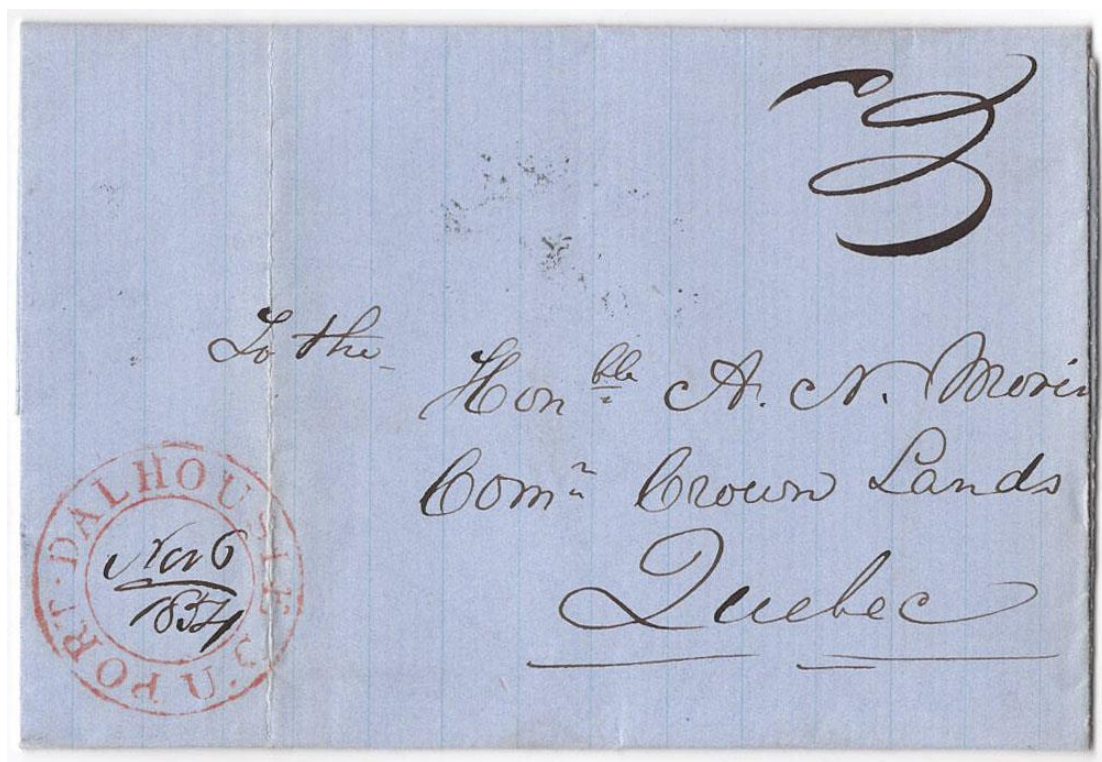 3
To the
Hon ble A. N. Morin
Com n Crown Lands
Quebec
PORT·DALHOUSIE U.C.
Nov 6
1854